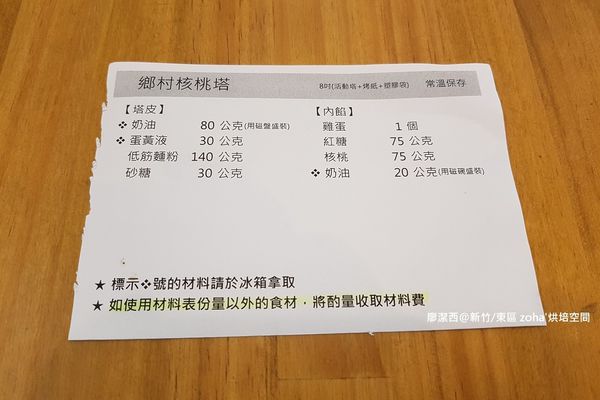 鄉村核桃塔 8吋(活動塔+烤紙+塑膠袋) 常溫保存
【塔皮】
❖ 奶油 80 公克(用磁盤盛裝)
❖ 蛋黃液 30 公克
低筋麵粉 140 公克
砂糖 30 公克
【內餡】
雞蛋 1 個
紅糖 75 公克
核桃 75 公克
❖ 奶油 20 公克(用磁碗盛裝)
★ 標示❖號的材料請於冰箱拿取
★ 如使用材料表份量以外的食材，將酌量收取材料費
廖潔西@新竹/東區 zoha'烘培空間